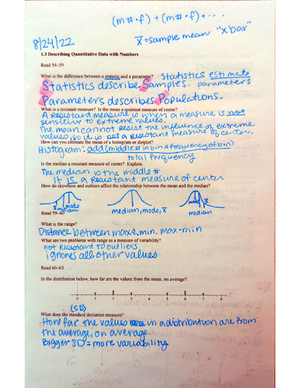 (m#·f) + (m#·f) + ...
8/24/22
x̄ = sample mean "x bar"
1.3 Describing Quantitative Data with Numbers
Read 54-59
What is the difference between a statistic and a parameter? Statistics estimate parameters
Statistics describe Samples.
Parameters describes Populations.
What is a resistant measure? Is the mean a resistant measure of center?
A Resistant measure is when a measure is not
sensitive to extreme values.
The mean cannot resist the influence of extreme
values, so it is not a resistant measure of center.
How can you estimate the mean of a histogram or dotplot?
Histogram: add (middle # in bin x frequency of bin)
total frequency
Is the median a resistant measure of center? Explain.
The median is the middle #
it IS a Resistant measure of center
How do skewness and outliers affect the relationship between the mean and the median?
median, mode, x̄
median
Read
What is the range?
Distance between max & min. max-min
What are two problems with range as a measure of variability?
not Resistant to outliers
ignores all other values
Read 60-63
In the distribution below, how far are the values from the mean, on average?
(SD)
What does the standard deviation measure?
How far the values in a distribution are from
the average, on average
Bigger SD = more variability